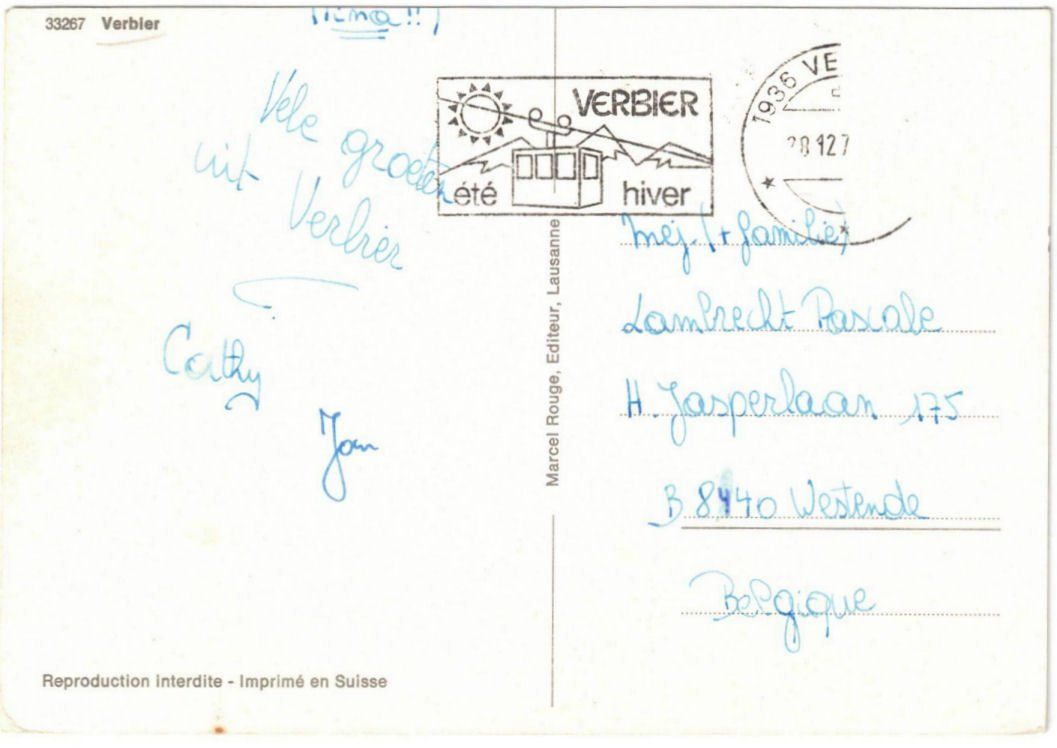 33267 Verbier
Vele groeten
uit Verbier
Cathy
Jan
Reproduction interdite - Imprimé en Suisse
Marcel Rouge, Editeur, Lausanne
VERBIER
été hiver
1936 VE
28 12 7
Mej. (+ familie)
Lambrecht Pascale
H. Jasperlaan 175
B 8440 Westende
Belgique